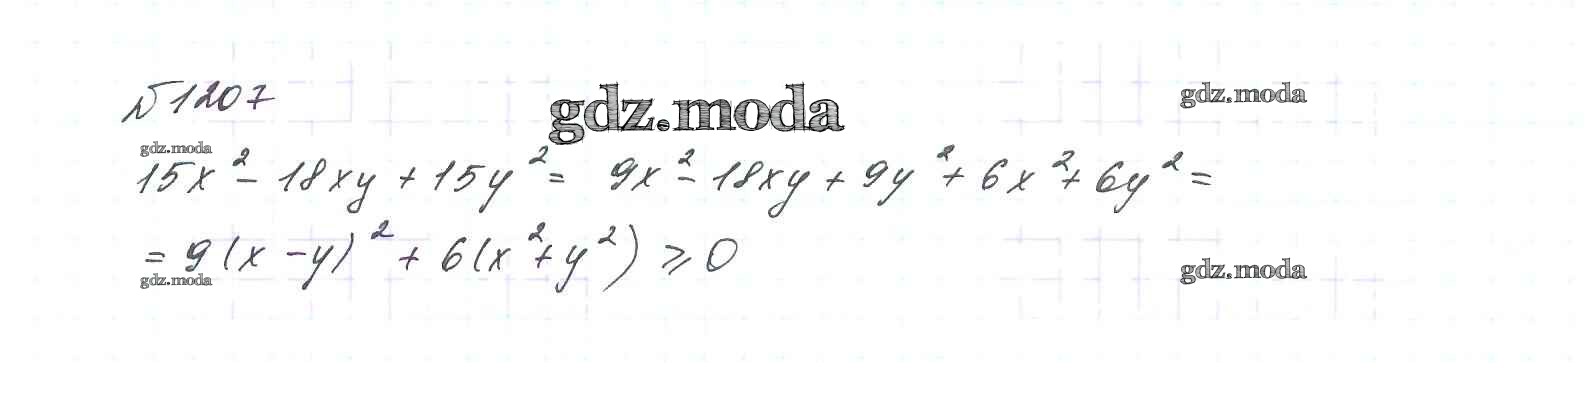 №1207
gdz.moda
gdz.moda
gdz.moda
15x² - 18xy + 15y² = 9x² - 18xy + 9y² + 6x² + 6y² =
= 9(x - y)² + 6(x² + y²) ⩾ 0
gdz.moda
gdz.moda